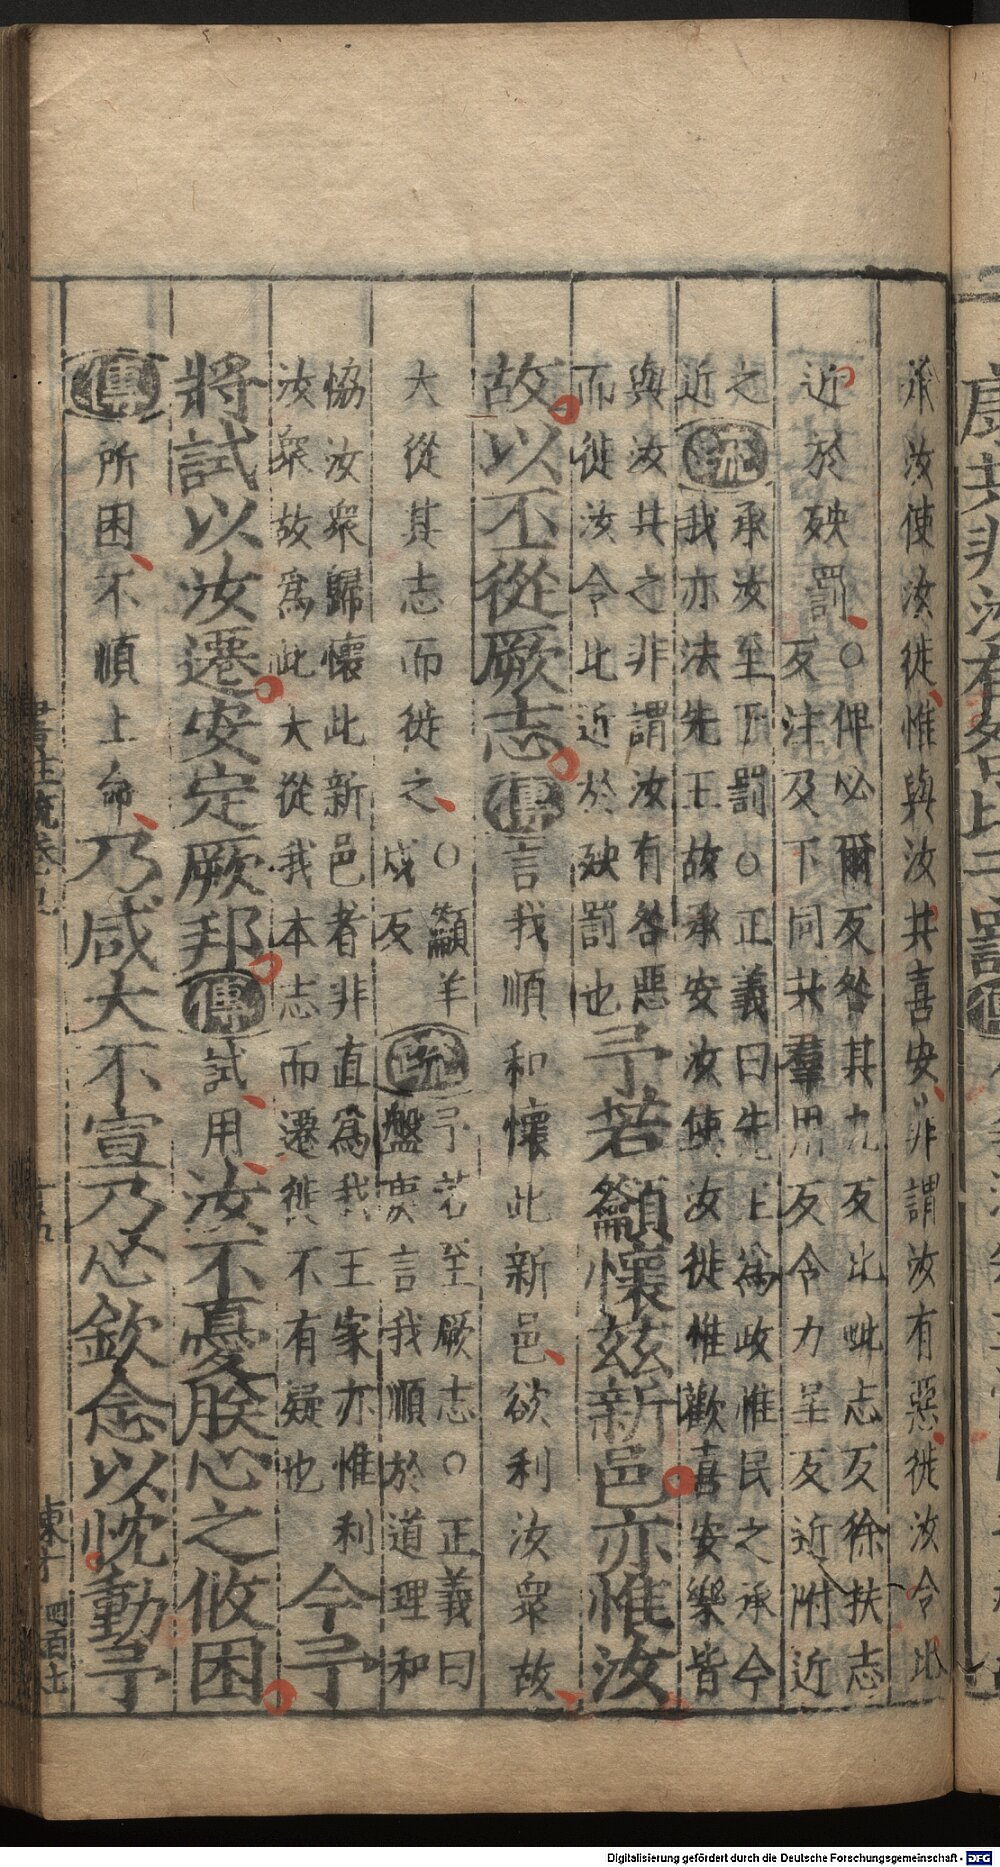 承汝使汝徙惟與汝共喜安非謂汝有惡徙汝令比
近於殃罰○俾必爾反咎其九反比毗志反徐扶志
反注及下同共羣用反令力呈反近附近
之近疏承汝至于罰○正義曰先王為政惟民之承今
我亦法先王故承安汝使汝徙惟歡喜安樂皆
與汝共之非謂汝有咎惡
而徙汝令比近於殃罰也予若籲懷茲新邑亦惟汝
故以丕從厥志傳言我順和懷此新邑欲利汝眾故
大從其志而徙之○籲羊
戍反疏予若至厥志○正義曰
盤庚言我順於道理和
協汝眾歸懷此新邑者非直為我王家亦惟利
汝眾故為此大從我本志而遷徙不有疑也今予
將試以汝遷安定厥邦傳試用汝不憂朕心之攸困
傳所困不順上命乃咸大不宣乃心欽念以忱動予
書注疏卷九
十五
四百七
康共非汝有咎比于罰傳
Digitalisierung gefördert durch die Deutsche Forschungsgemeinschaft - DFG